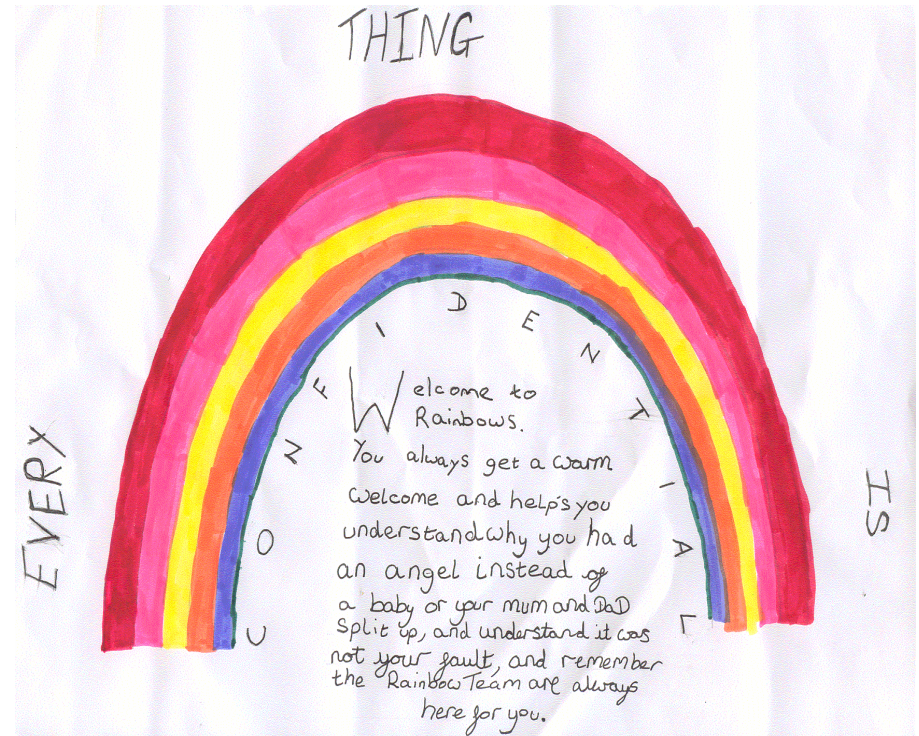 EVERY
THING
IS
CONFIDENTIAL
Welcome to
Rainbows.
You always get a warm
welcome and help's you
understand why you had
an angel instead of
a baby or your mum and DaD
Split up, and understand it was
not your fault, and remember
the Rainbow Team are always
here for you.